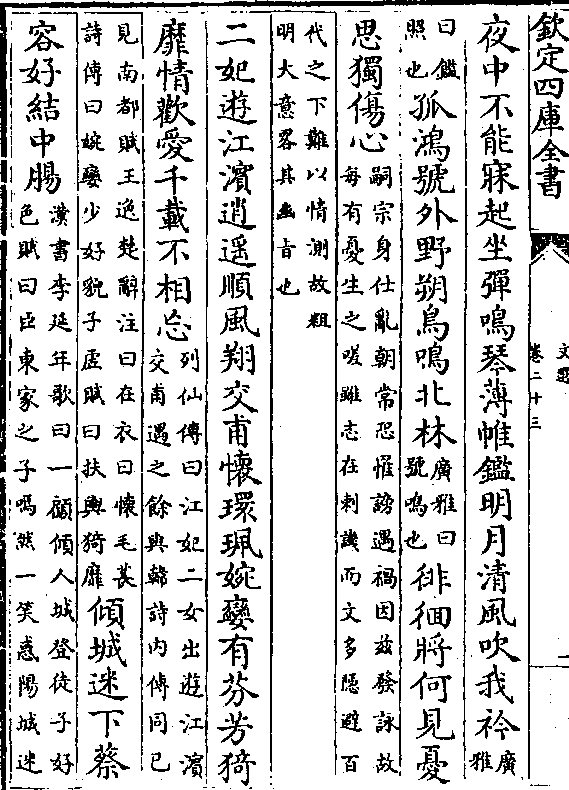 欽定四庫全書
文選
卷二十三
夜中不能寐起坐彈鳴琴薄帷鑑明月清風吹我衿廣雅
曰鑑照也孤鴻號外野朔鳥鳴北林廣雅曰號鳴也徘徊將何見憂
思獨傷心嗣宗身仕亂朝常恐罹謗遇禍因兹發詠故每有憂生之嗟雖志在刺譏而文多隱避百
代之下難以情測故粗明大意畧其幽旨也
二妃遊江濵逍遥順風翔交甫懷環珮婉孌有芬芳猗
靡情歡愛千載不相忘列仙傳曰江妃二女出遊江濵交甫遇之餘與韓詩内傳同已
見南都賦王逸楚辭注曰在衣曰懐毛萇詩傳曰婉孌少好貌子虚賦曰扶輿猗靡傾城迷下蔡
容好結中腸漢書李延年歌曰一顧傾人城登徒子好色賦曰臣東家之子嫣然一笑惑陽城迷